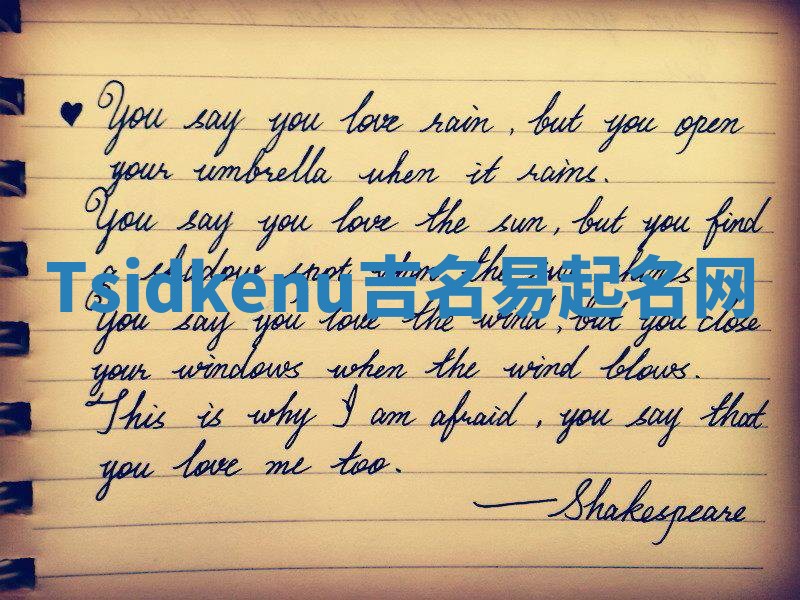 ♥ You say you love rain, but you open
your umbrella when it rains.
You say you love the sun, but you find
a shadow spot when the sun shines
Tsidkenu吉名易起名网
You say you love the wind, but you close
your windows when the wind blows.
This is why I am afraid, you say that
you love me too.
—Shakespeare